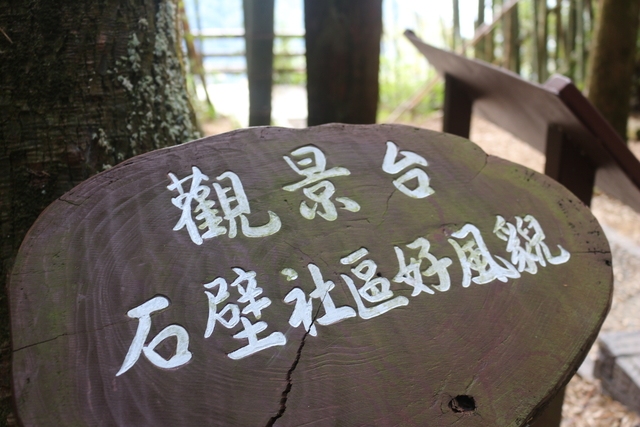 觀景台
石壁社區好風貌